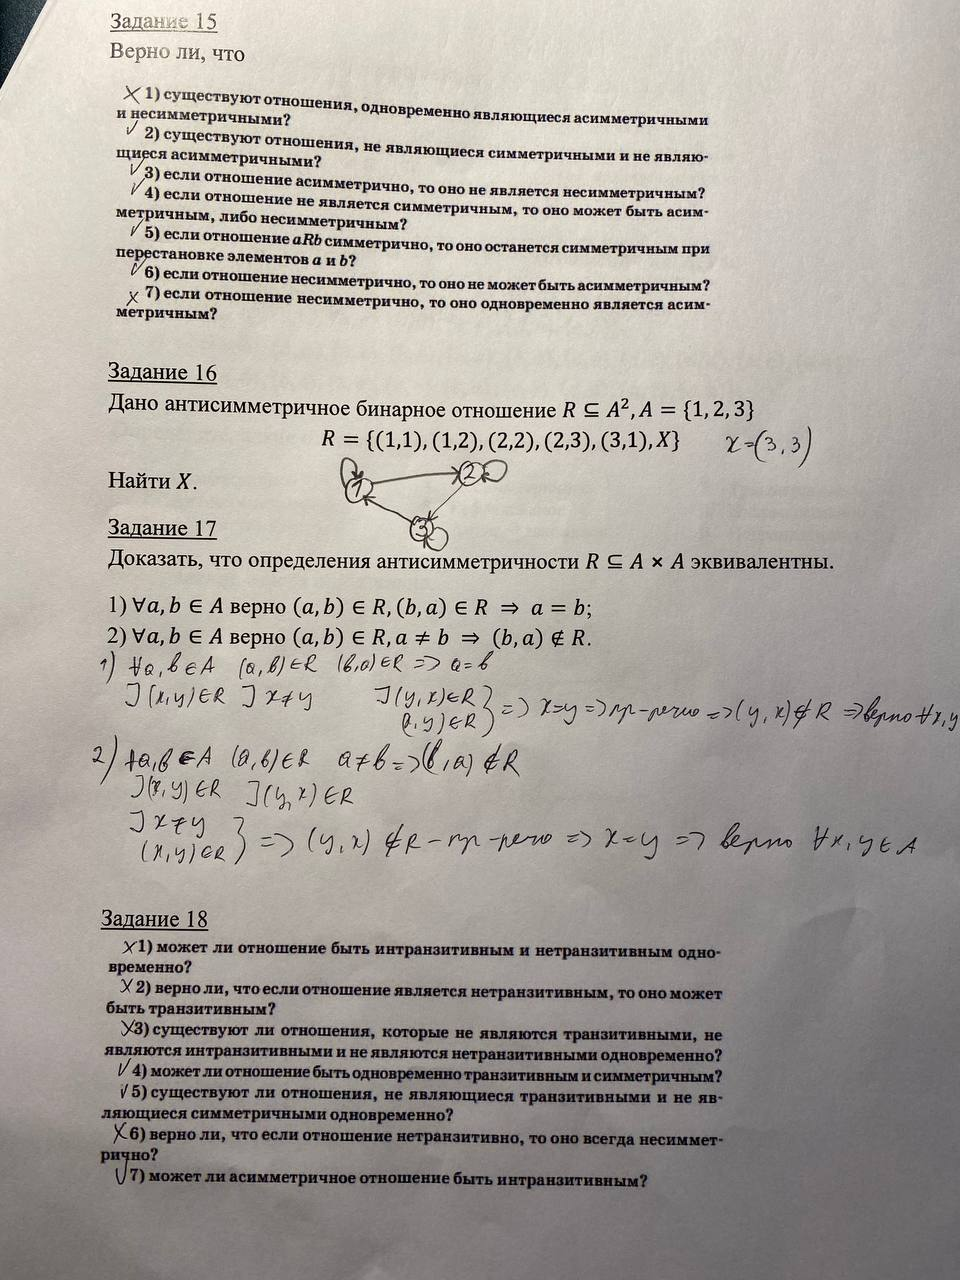 Задание 15
Верно ли, что
✗ 1) существуют отношения, одновременно являющиеся асимметричными
и несимметричными?
✓ 2) существуют отношения, не являющиеся симметричными и не являю-
щиеся асимметричными?
✓ 3) если отношение асимметрично, то оно не является несимметричным?
✓ 4) если отношение не является симметричным, то оно может быть асим-
метричным, либо несимметричным?
✓ 5) если отношение aRb симметрично, то оно останется симметричным при
перестановке элементов a и b?
✓ 6) если отношение несимметрично, то оно не может быть асимметричным?
✗ 7) если отношение несимметрично, то оно одновременно является асим-
метричным?
Задание 16
Дано антисимметричное бинарное отношение R ⊆ A², A = {1, 2, 3}
R = {(1,1), (1,2), (2,2), (2,3), (3,1), X} x=(3,3)
Найти X.
1 2
3
Задание 17
Доказать, что определения антисимметричности R ⊆ A × A эквивалентны.
1) ∀a, b ∈ A верно (a, b) ∈ R, (b, a) ∈ R ⇒ a = b;
2) ∀a, b ∈ A верно (a, b) ∈ R, a ≠ b ⇒ (b, a) ∉ R.
1) ∀a, b ∈ A (a, b) ∈ R (b, a) ∈ R => a = b
] (x, y) ∈ R ] x ≠ y ] (y, x) ∈ R } => x=y => пр-речие => (y, x) ∉ R => верно ∀x, y
(x, y) ∈ R
2) ∀a, b ∈ A (a, b) ∈ R a ≠ b => (b, a) ∉ R
] (x, y) ∈ R ] (y, x) ∈ R
] x ≠ y
(x, y) ∈ R } => (y, x) ∉ R – пр-речие => x=y => верно ∀x, y ∈ A
Задание 18
✗ 1) может ли отношение быть интранзитивным и нетранзитивным одно-
временно?
✗ 2) верно ли, что если отношение является нетранзитивным, то оно может
быть транзитивным?
✗ 3) существуют ли отношения, которые не являются транзитивными, не
являются интранзитивными и не являются нетранзитивными одновременно?
✓ 4) может ли отношение быть одновременно транзитивным и симметричным?
✓ 5) существуют ли отношения, не являющиеся транзитивными и не яв-
ляющиеся симметричными одновременно?
✗ 6) верно ли, что если отношение нетранзитивно, то оно всегда несиммет-
рично?
✓ 7) может ли асимметричное отношение быть интранзитивным?